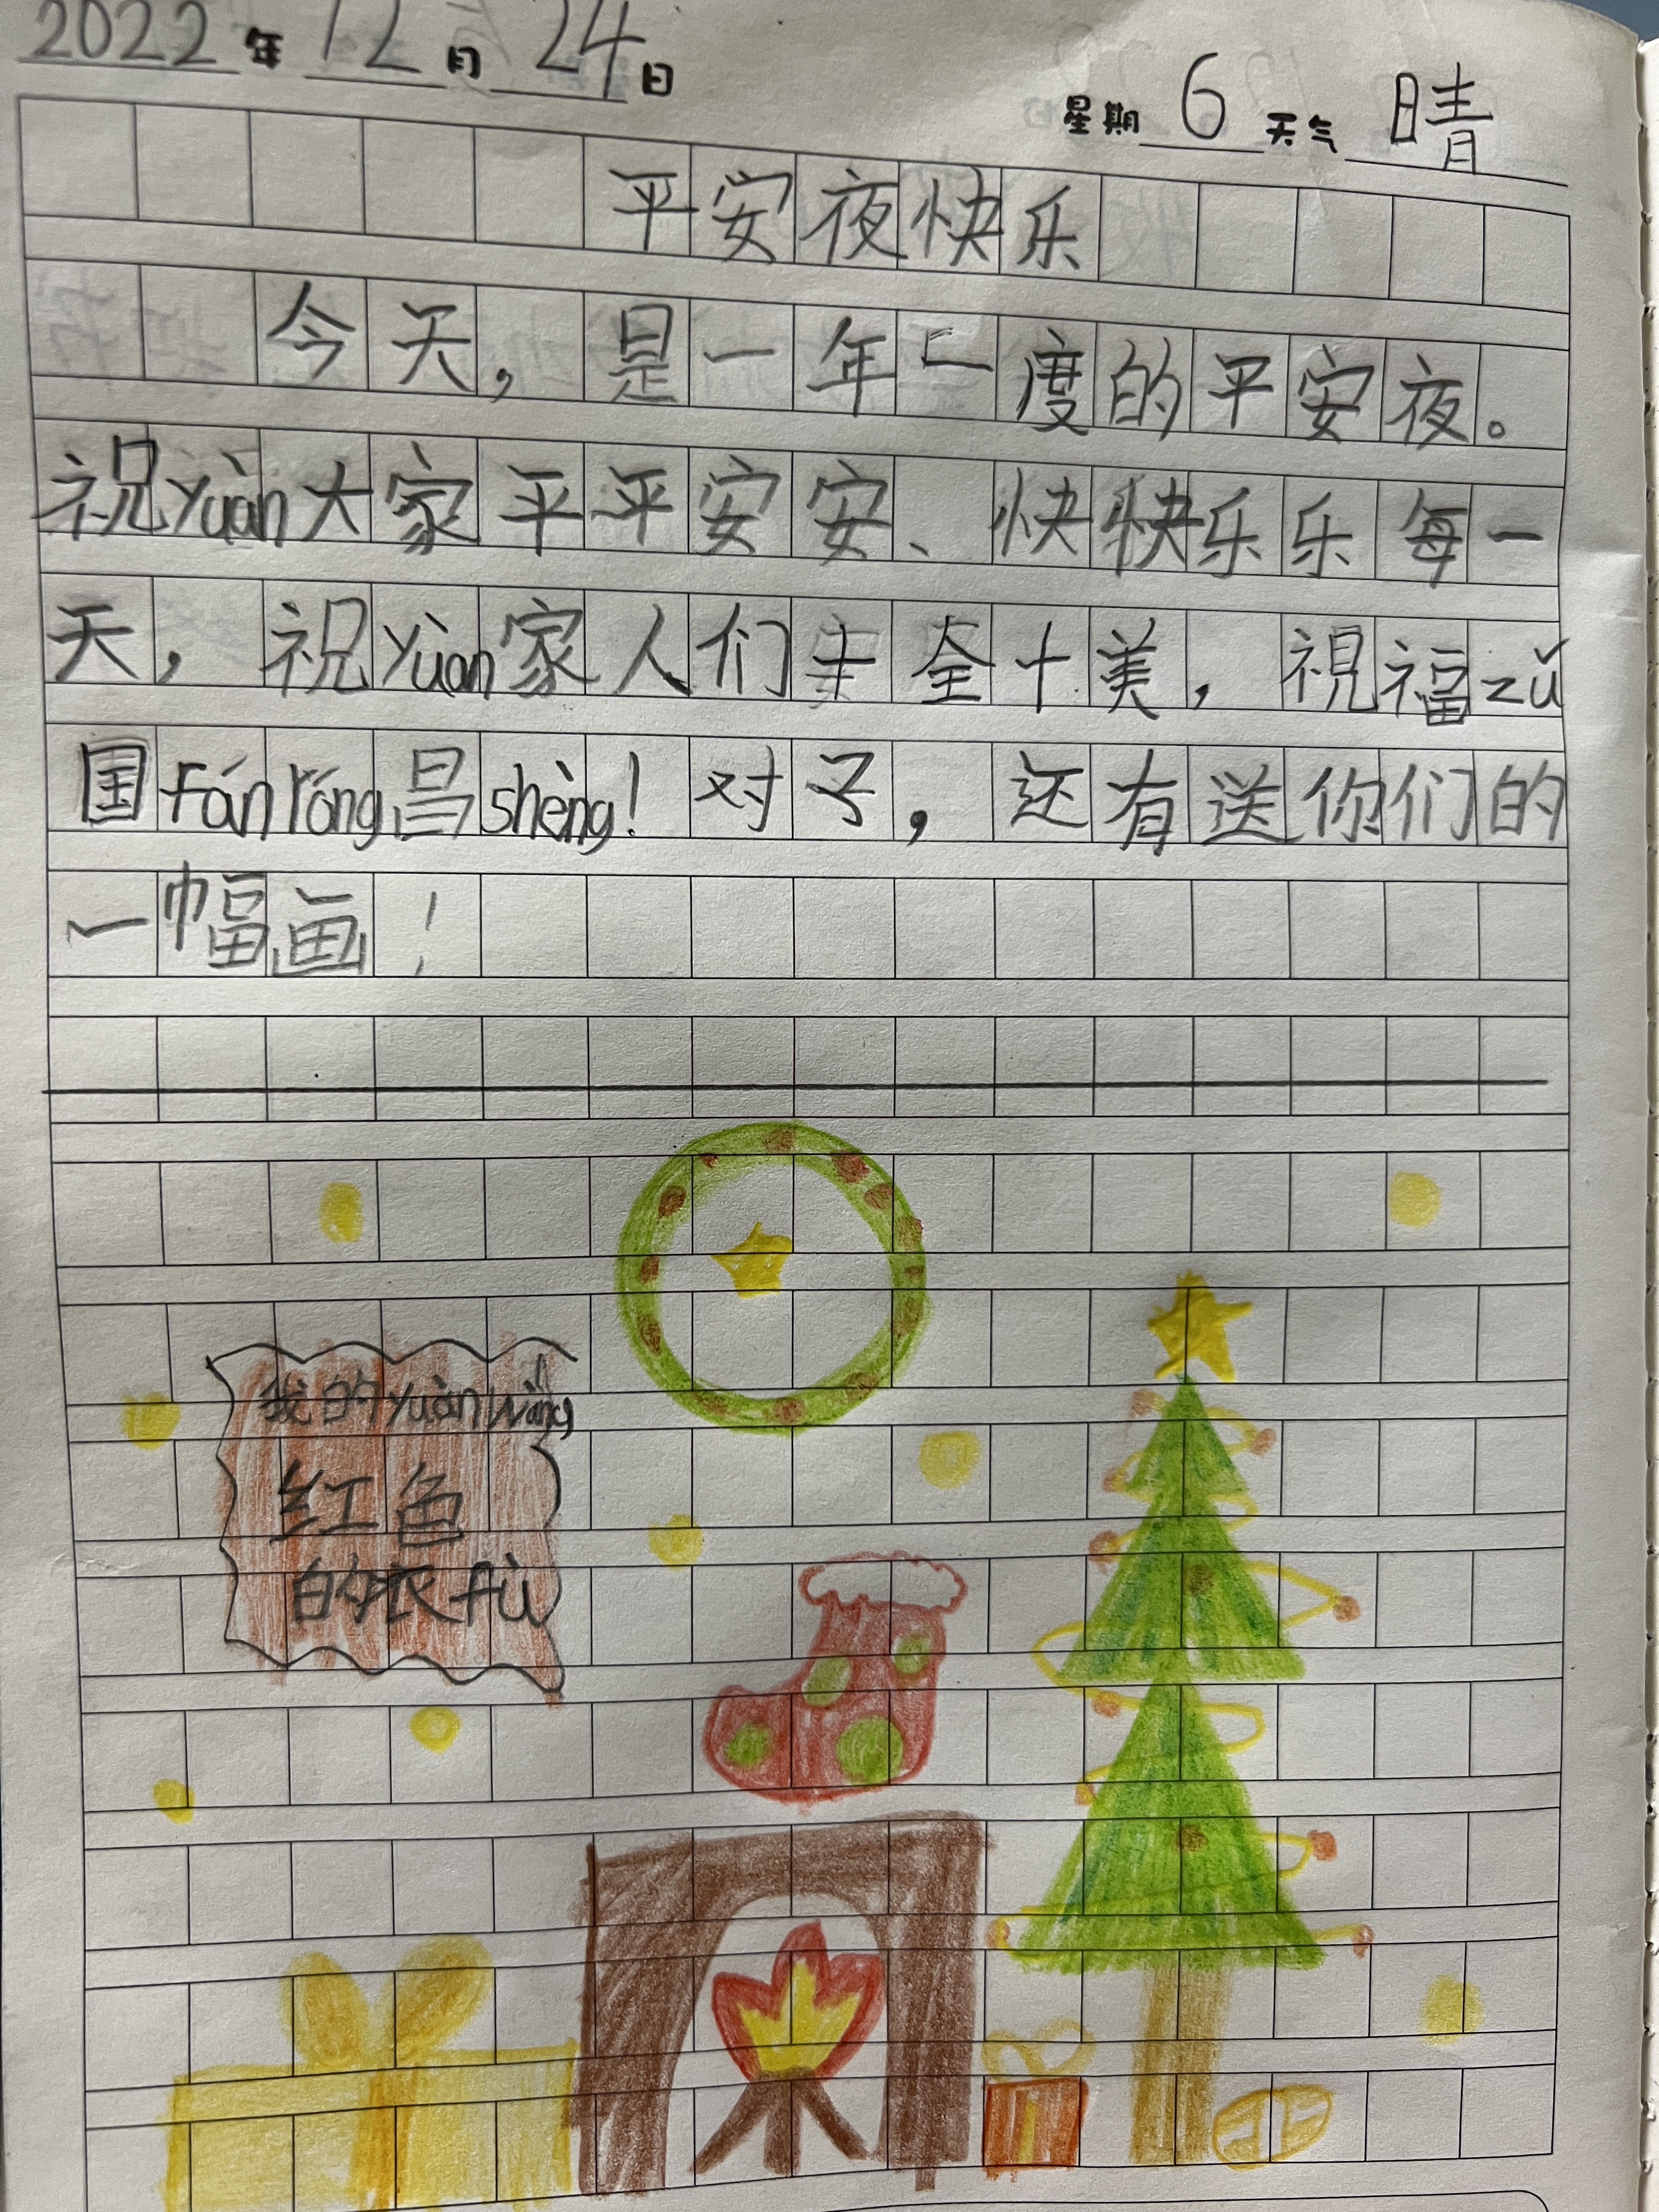 2022年12月24日
星期6天气晴
平安夜快乐
今天，是一年一度的平安夜。
祝yuàn大家平平安安、快快乐乐每一
天，祝yuàn家人们十全十美，祝福zǔ
国Fánróng昌shèng！对了，还有送你们的
一幅画！
我的yuànwàng
红色
的衣fú